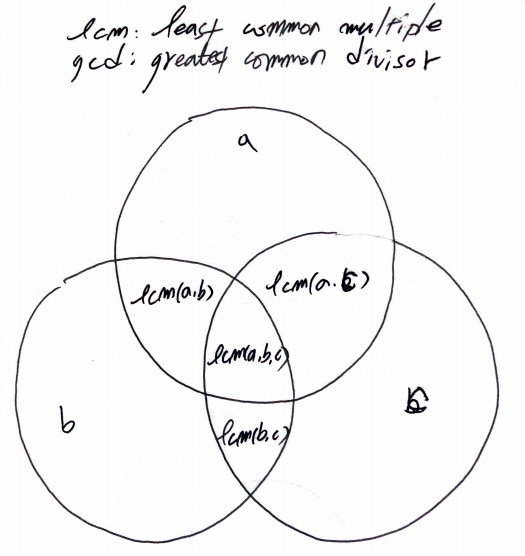 lcm: least common multiple
gcd: greatest common divisor
a
lcm(a,b)
lcm(a,c)
lcm(a,b,c)
b
c
lcm(b,c)